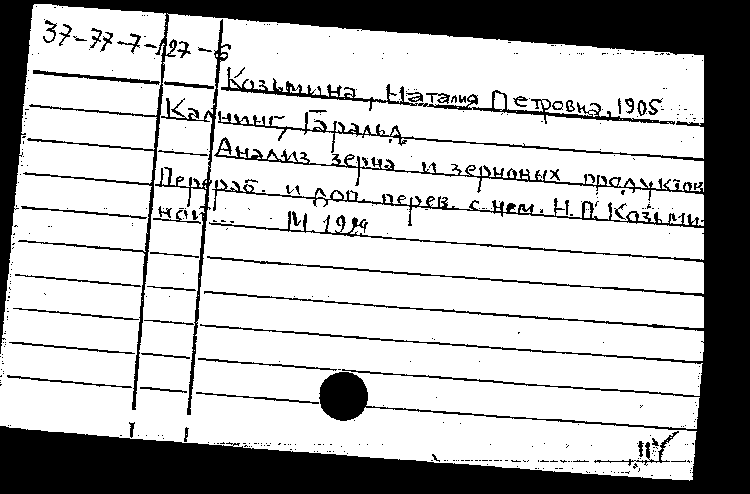 37-77-7-127-6
Козьмина, Наталия Петровна, 1905
Калнинг, Гаральд
Анализ зерна и зерновых продуктов
Перераб. и доп. перев. с нем. Н.П. Козьми-
ной... М. 1929